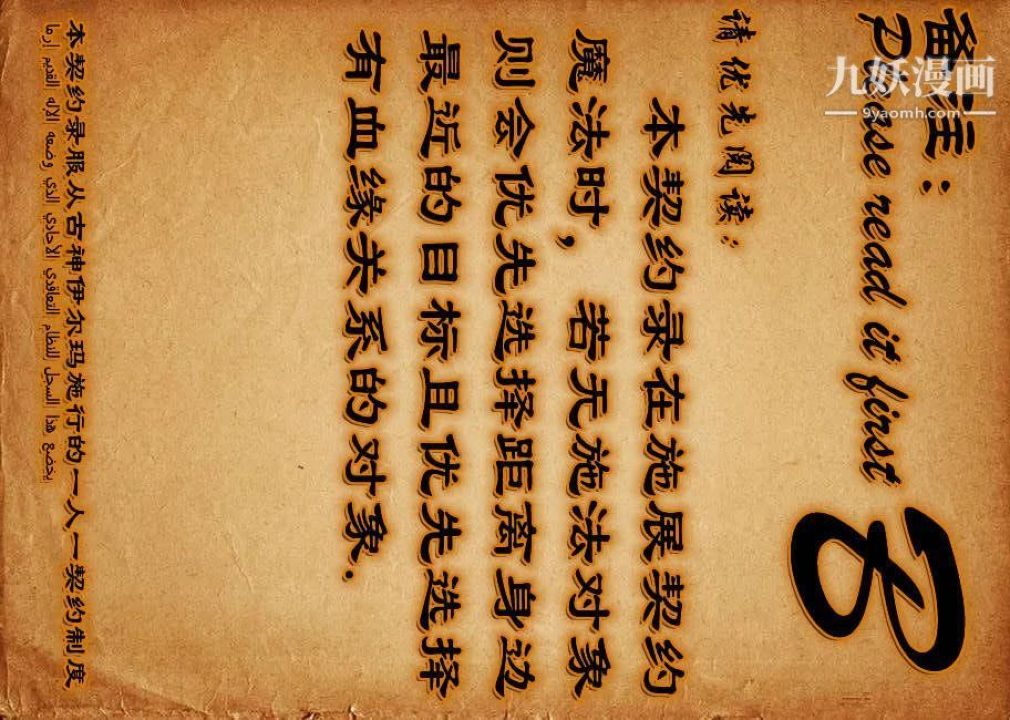 备注:
Please read it first
请优先阅读:
本契约录在施展契约
魔法时,若无施法对象
则会优先选择距离身边
最近的目标且优先选择
有血缘关系的对象.
本契约录服从古神伊尔玛施行的一人一契约制度
يخضع هذا السجل للنظام التعاقدي الأحادي الذي وضعه الإله القديم إرما
九妖漫画
9yaomh.com